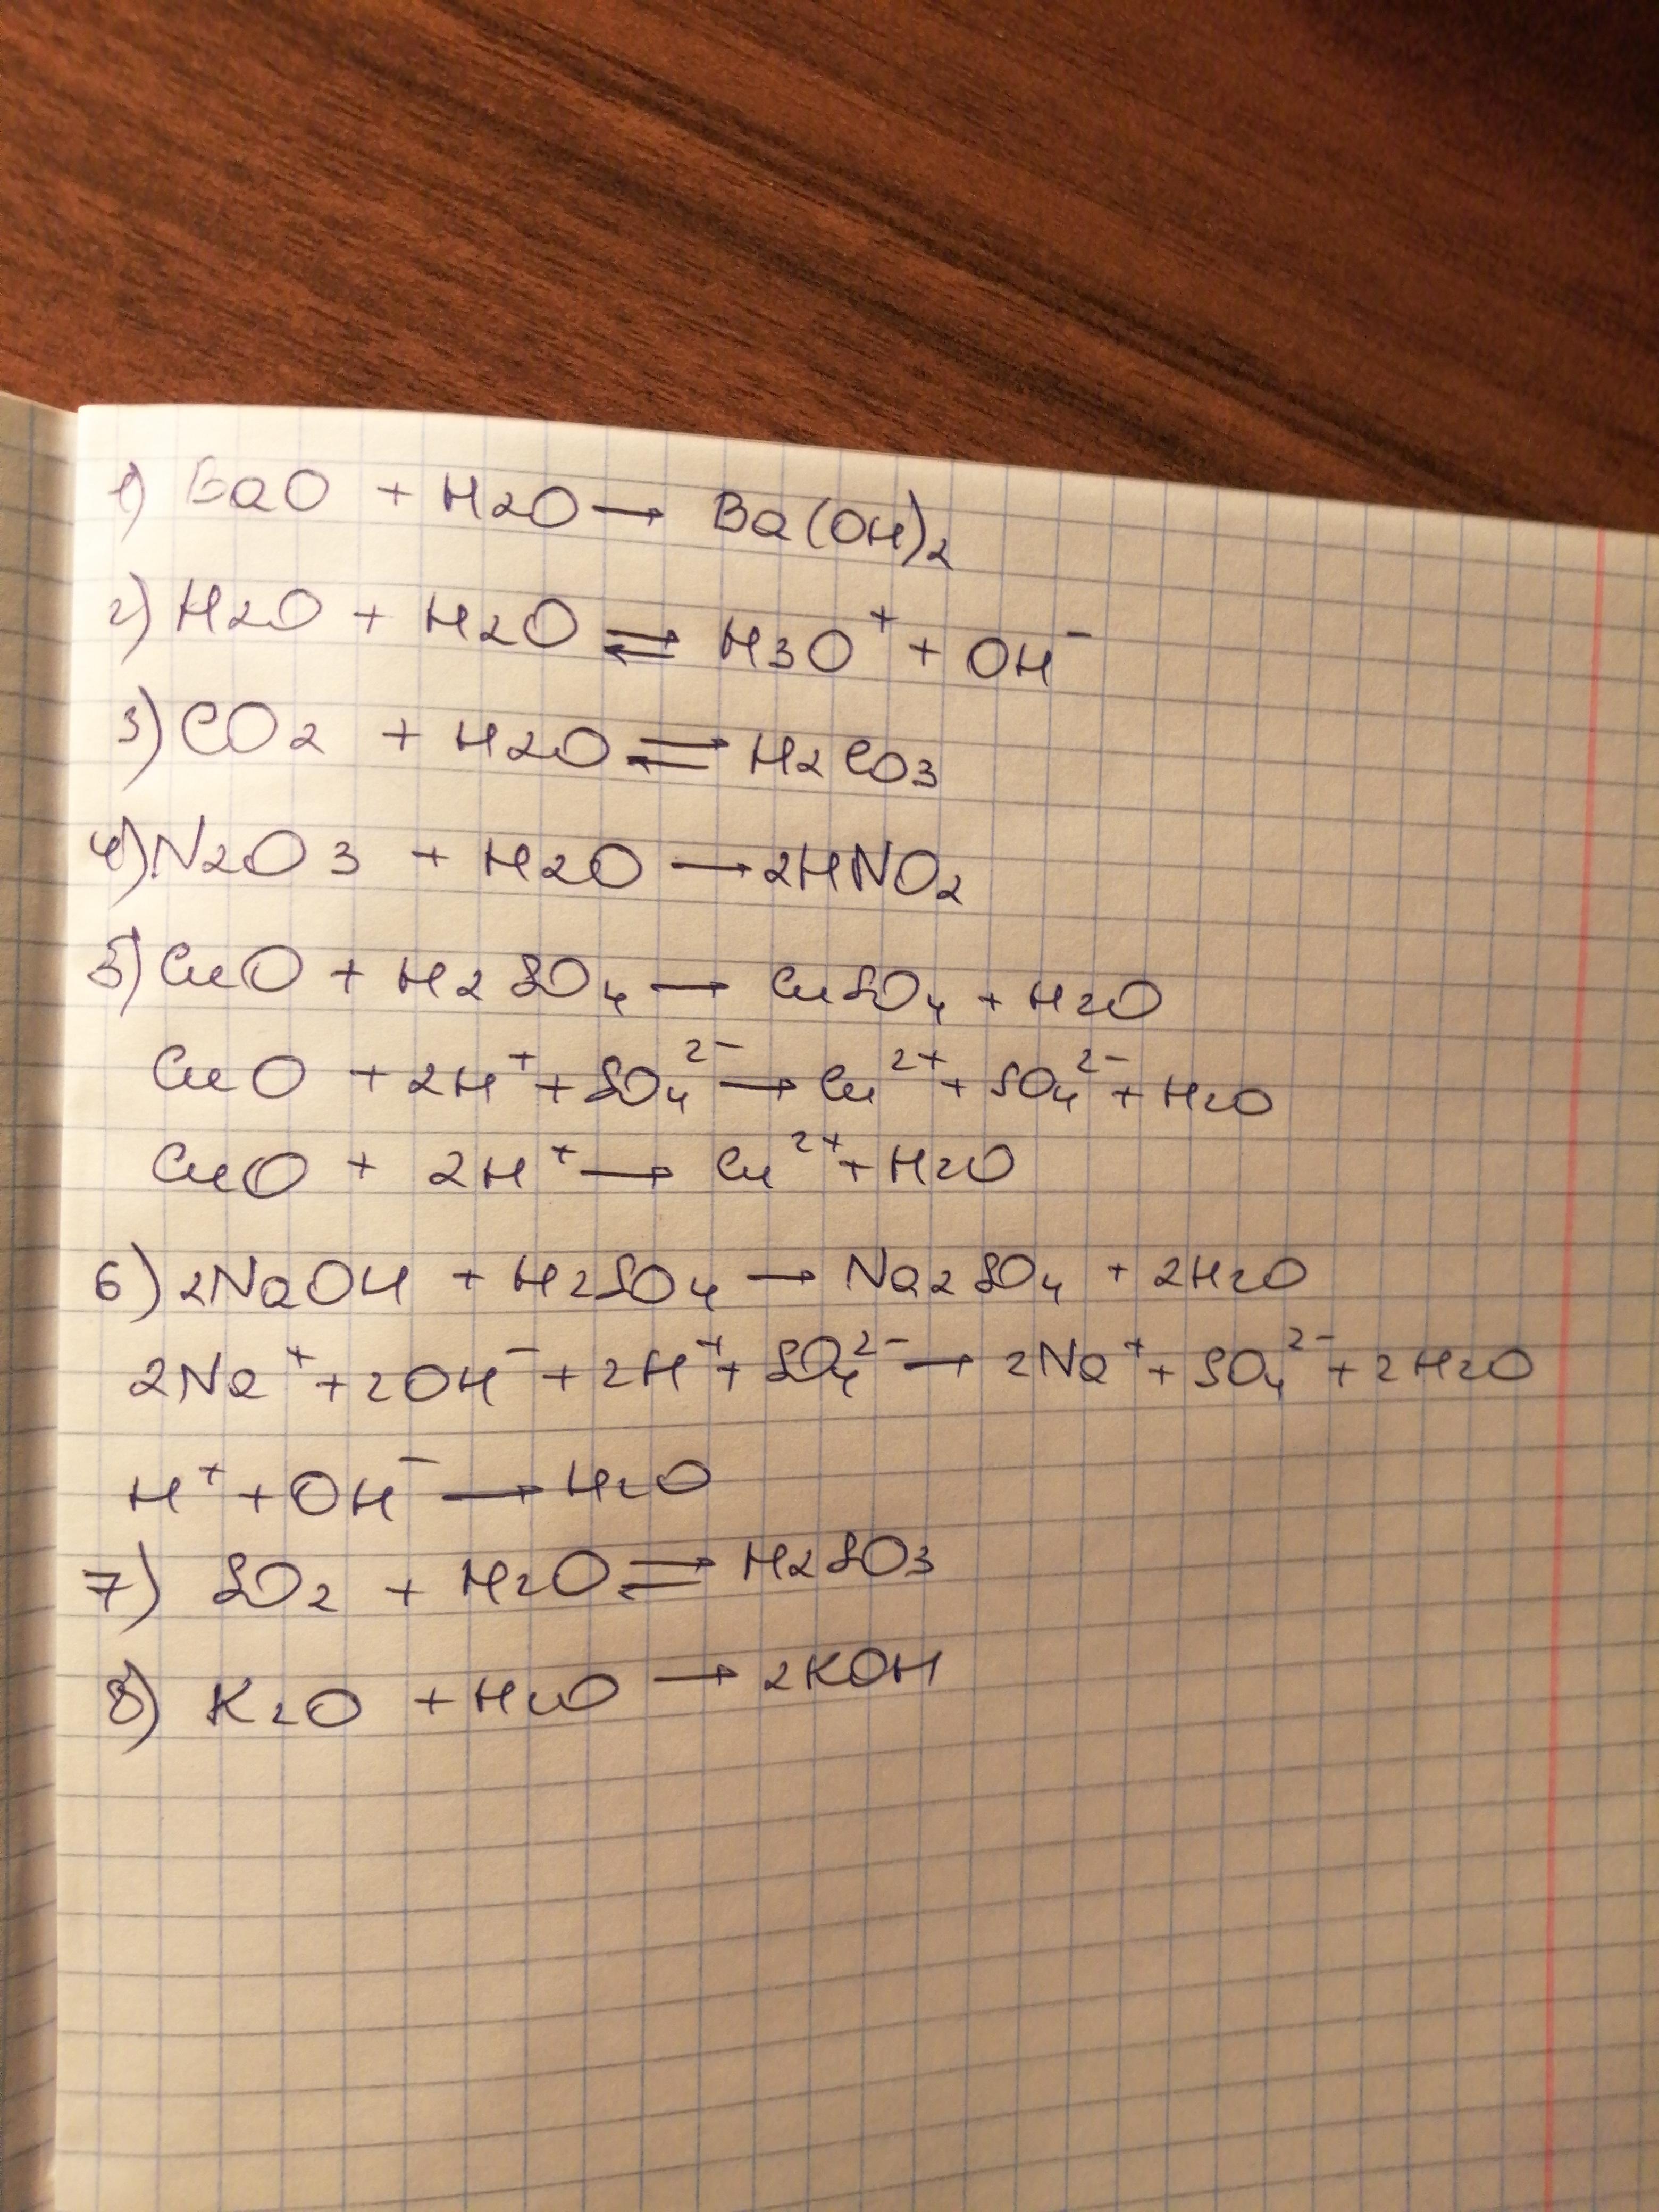 1) BaO + H2O → Ba(OH)2
2) H2O + H2O ⇌ H3O⁺ + OH⁻
3) CO2 + H2O ⇌ H2CO3
4) N2O3 + H2O → 2HNO2
5) CuO + H2SO4 → CuSO4 + H2O
CuO + 2H⁺ + SO4²⁻ → Cu²⁺ + SO4²⁻ + H2O
CuO + 2H⁺ → Cu²⁺ + H2O
6) 2NaOH + H2SO4 → Na2SO4 + 2H2O
2Na⁺ + 2OH⁻ + 2H⁺ + SO4²⁻ → 2Na⁺ + SO4²⁻ + 2H2O
H⁺ + OH⁻ → H2O
7) SO2 + H2O ⇌ H2SO3
8) K2O + H2O → 2KOH